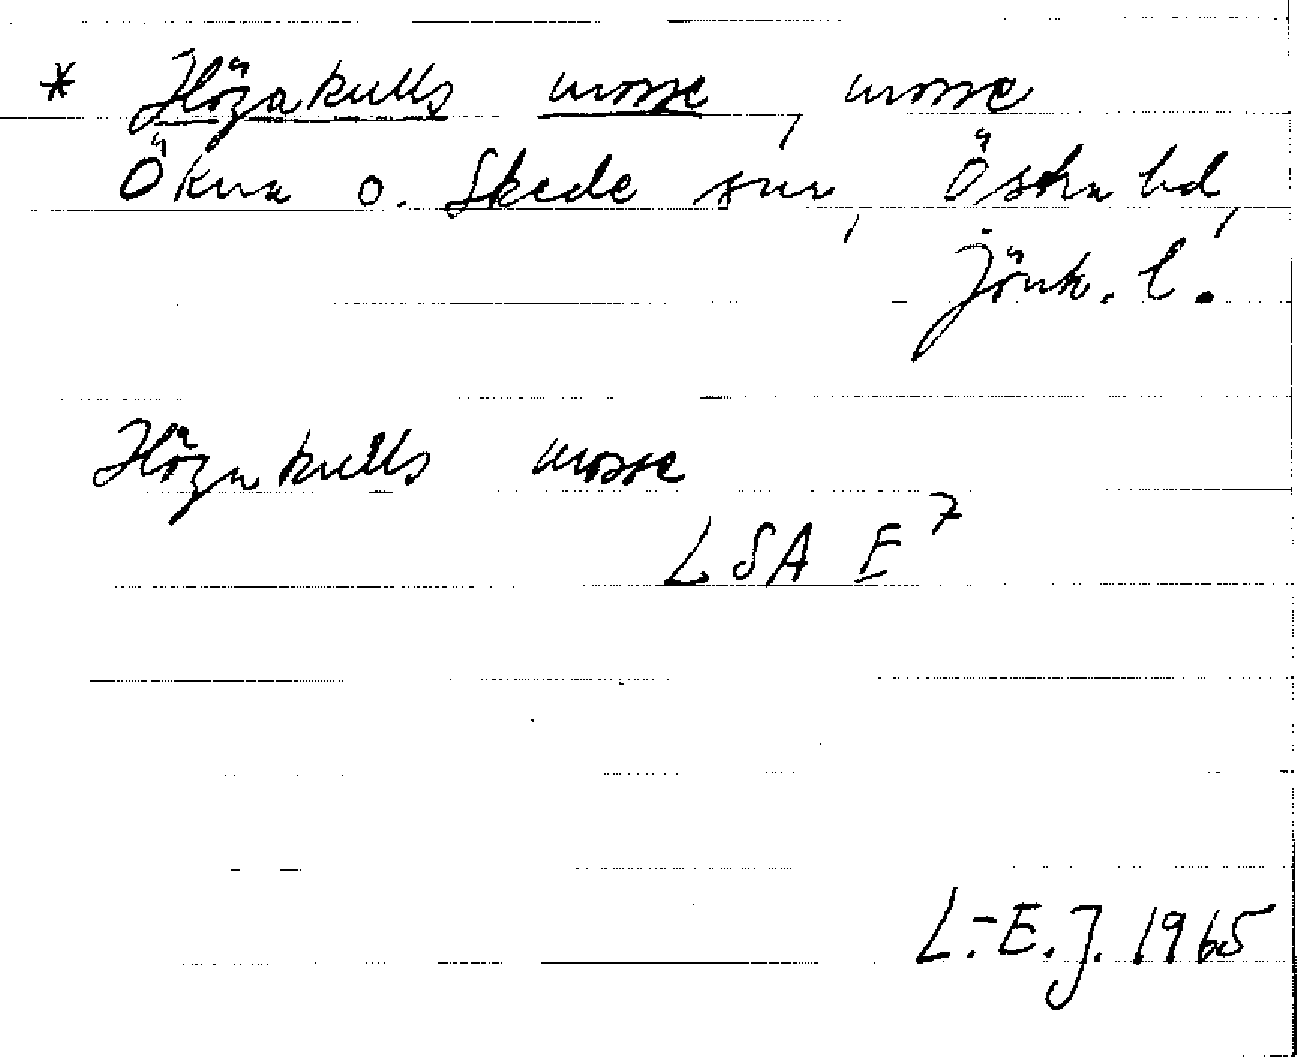 * Högakulls mosse, mosse
Ökna o. Skede snr, Östra hd,
Jönk. l.
Högakulls mosse
LSA E7
L.-E.J. 1965